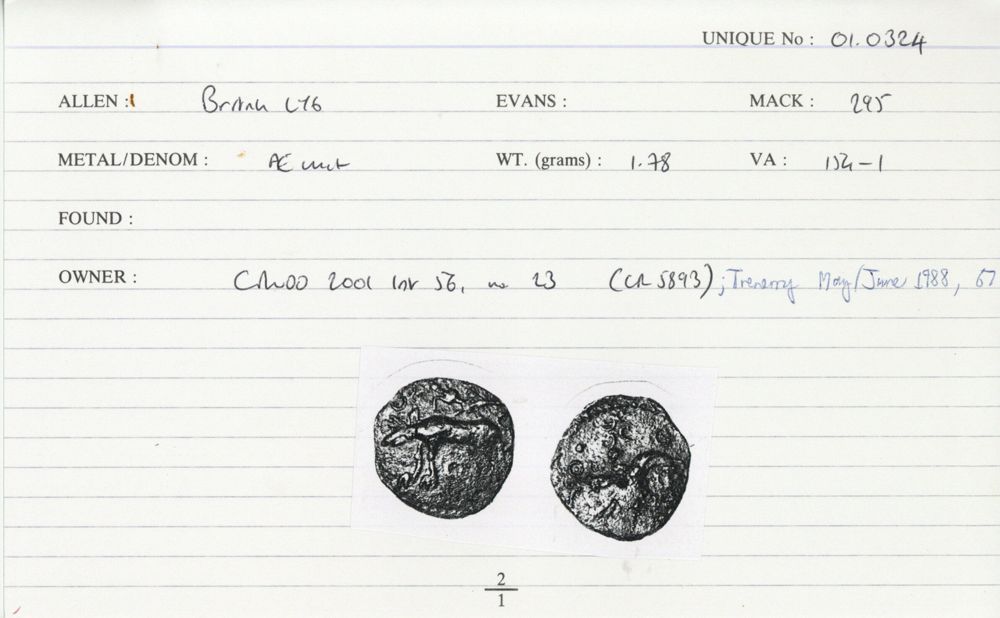 UNIQUE No : 01.0324
ALLEN : British LY6 EVANS : MACK : 295
METAL/DENOM : Æ unit WT. (grams) : 1.78 VA : 154-1
FOUND :
OWNER : 2001 no 23 (CR 5893) ; Trenerry May/June 1988, 67
2
1